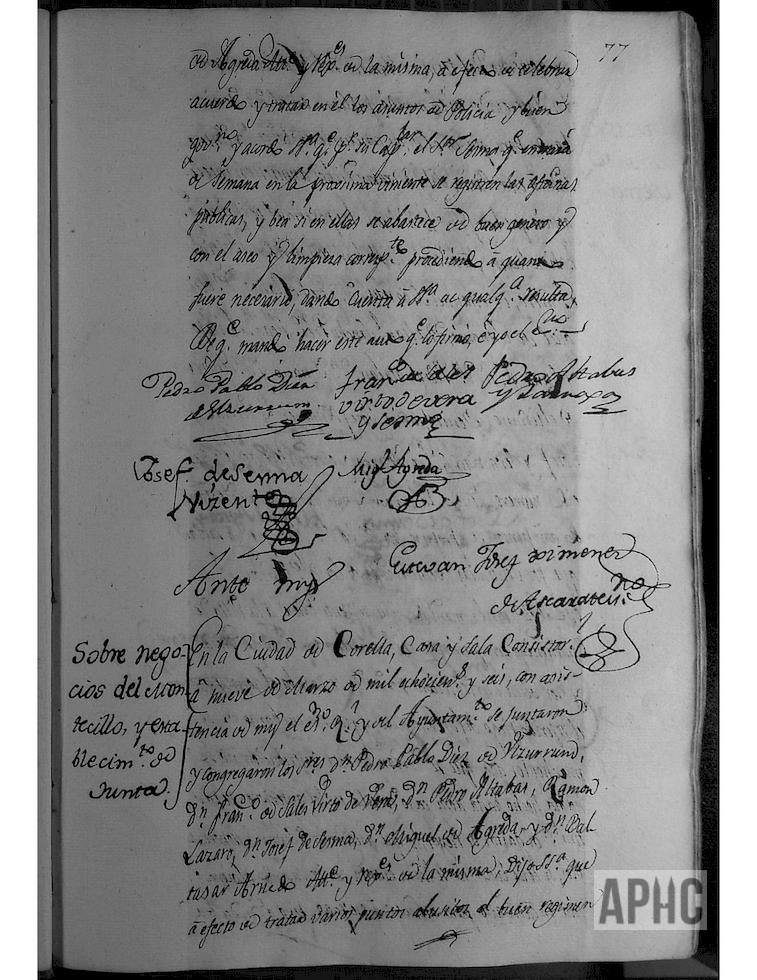 77
de Agreda Att.e y Rex.es de la misma, a efecto de celebrar
acuerdo y tratar en él los asuntos de Policia y buen
gov.no y acordó S.a q.e p.r su Cap.lar el S.or Serma q.e entrará
de Semana en la proxîma viniente se registren las oficinas
publicas, y bea si en ellas se abastece de buen genero y
con el aseo y limpieza corresp.te prozediendo â quanto
fuere necesario, dando cuenta â S.a de qualq.a resulta,
de q.e mandó hacer este auto q.e lo firmó, é yo el es.no
Pedro Pablo Diez
de Ulzurrun
Fran.co de Sales
Virto de Vera
Pedro Altabas
y Serma
Josef. de Serma
Vizente
Mig.l Agreda
Ante my
Estevan Josef Ximenez
de Ascarate es.no
Sobre nego-
cios del Mon-
tecillo, y esta
blecim.to de
Junta
En la Ciudad de Corella, Casa y Sala Consistor.l
â nueve de Marzo de mil ochocien.s y seis, con asis-
tencia de my el es.no R.l y del Ayuntam.to se juntaron
y congregaron los s.res d.n Pedro Pablo Diez de Ulzurrun,
d.n Fran.co de Sales Virto de Vera, d.n Pedro Altabas, Ramon
Lazaro, d.n Josef de Serma, d.n Miguel de Agreda, y d.n Bal
tasar Arnedo Att.e y rex.es de la misma, Dijo S.S.a que
â efecto de tratar varios puntos alusibos al buen regimen
APHC